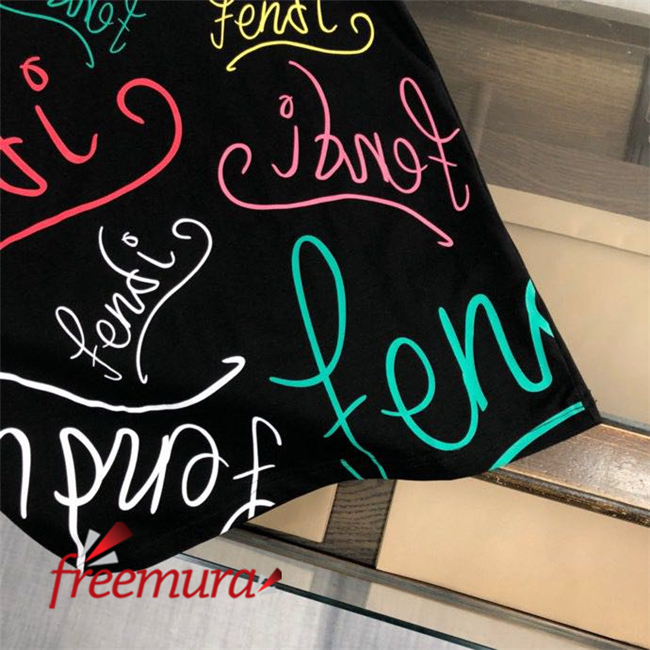 fendi
fendi
fendi
fendi
fendi
fendi
freemura